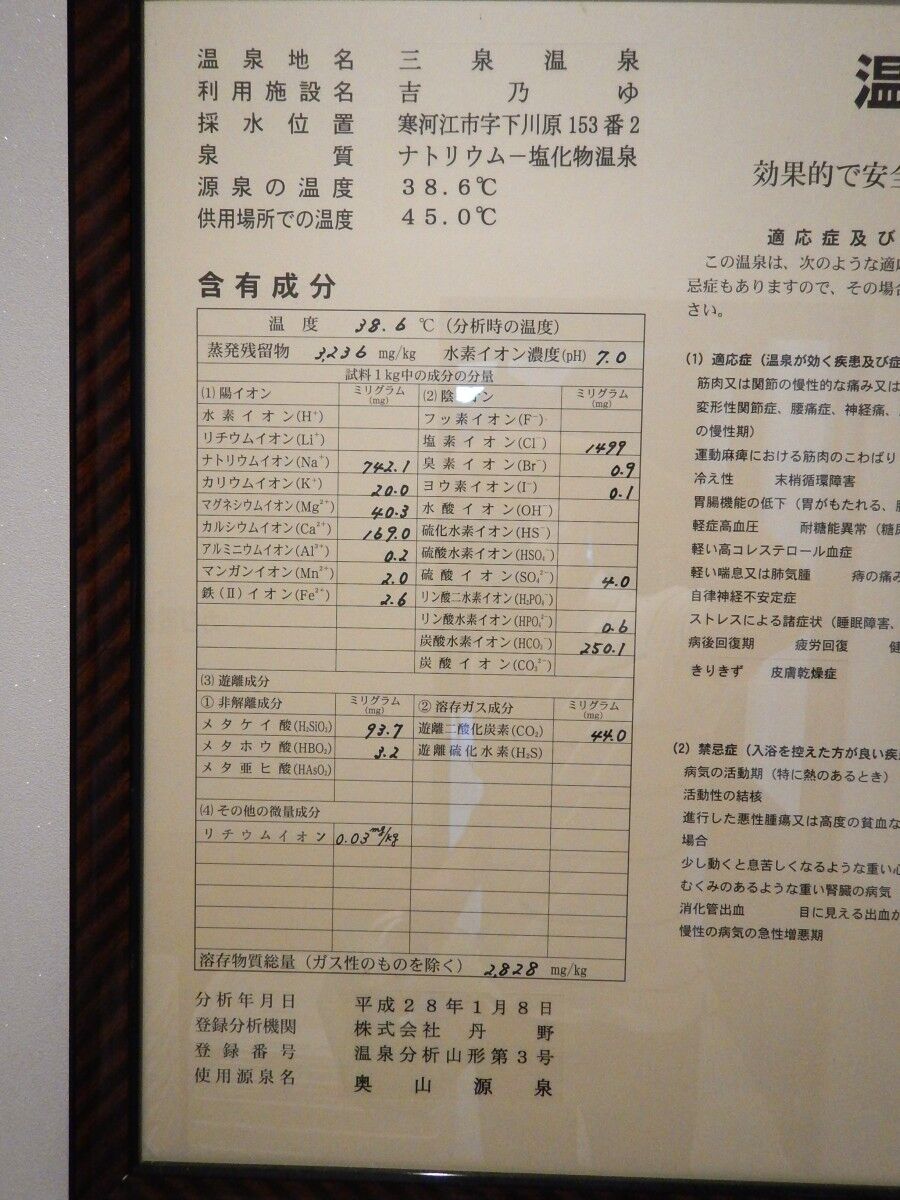 温泉地名 三泉温泉
利用施設名 吉乃ゆ
採水位置 寒河江市字下川原153番2
泉質 ナトリウム－塩化物温泉
源泉の温度 38.6℃
供用場所での温度 45.0℃
含有成分
温度 38.6 ℃（分析時の温度）
蒸発残留物 3,236 mg/kg 水素イオン濃度(pH) 7.0
試料1kg中の成分の分量
(1)陽イオン ミリグラム(mg) (2)陰イオン ミリグラム(mg)
水素イオン(H⁺) フッ素イオン(F⁻)
リチウムイオン(Li⁺) 塩素イオン(Cl⁻) 1499
ナトリウムイオン(Na⁺) 742.1 臭素イオン(Br⁻) 0.9
カリウムイオン(K⁺) 20.0 ヨウ素イオン(I⁻) 0.1
マグネシウムイオン(Mg²⁺) 40.3 水酸イオン(OH⁻)
カルシウムイオン(Ca²⁺) 169.0 硫化水素イオン(HS⁻)
アルミニウムイオン(Al³⁺) 0.2 硫酸水素イオン(HSO₄⁻)
マンガンイオン(Mn²⁺) 2.0 硫酸イオン(SO₄²⁻) 4.0
鉄(Ⅱ)イオン(Fe²⁺) 2.6 リン酸二水素イオン(H₂PO₄⁻)
リン酸水素イオン(HPO₄²⁻) 0.6
炭酸水素イオン(HCO₃⁻) 250.1
炭酸イオン(CO₃²⁻)
(3)遊離成分
①非解離成分 ミリグラム(mg) ②溶存ガス成分 ミリグラム(mg)
メタケイ酸(H₂SiO₃) 93.7 遊離二酸化炭素(CO₂) 44.0
メタホウ酸(HBO₂) 3.2 遊離硫化水素(H₂S)
メタ亜ヒ酸(HAsO₂)
(4)その他の微量成分
リチウムイオン 0.03 mg/kg
溶存物質総量（ガス性のものを除く） 2,828 mg/kg
分析年月日 平成28年1月8日
登録分析機関 株式会社 丹野
登録番号 温泉分析山形第3号
使用源泉名 奥山源泉
温
効果的で安全
適応症及び
この温泉は、次のような適応
忌症もありますので、その場合
さい。
(1) 適応症（温泉が効く疾患及び症
筋肉又は関節の慢性的な痛み又は
変形性関節症、腰痛症、神経痛、
の慢性期）
運動麻痺における筋肉のこわばり
冷え性 末梢循環障害
胃腸機能の低下（胃がもたれる、
軽症高血圧 耐糖能異常（糖尿
軽い高コレステロール血症
軽い喘息又は肺気腫 痔の痛み
自律神経不安定症
ストレスによる諸症状（睡眠障害、
病後回復期 疲労回復 健
きりきず 皮膚乾燥症
(2) 禁忌症（入浴を控えた方が良い疾
病気の活動期（特に熱のあるとき）
活動性の結核
進行した悪性腫瘍又は高度の貧血な
場合
少し動くと息苦しくなるような重い心
むくみのあるような重い腎臓の病気
消化管出血 目に見える出血が
慢性の病気の急性増悪期